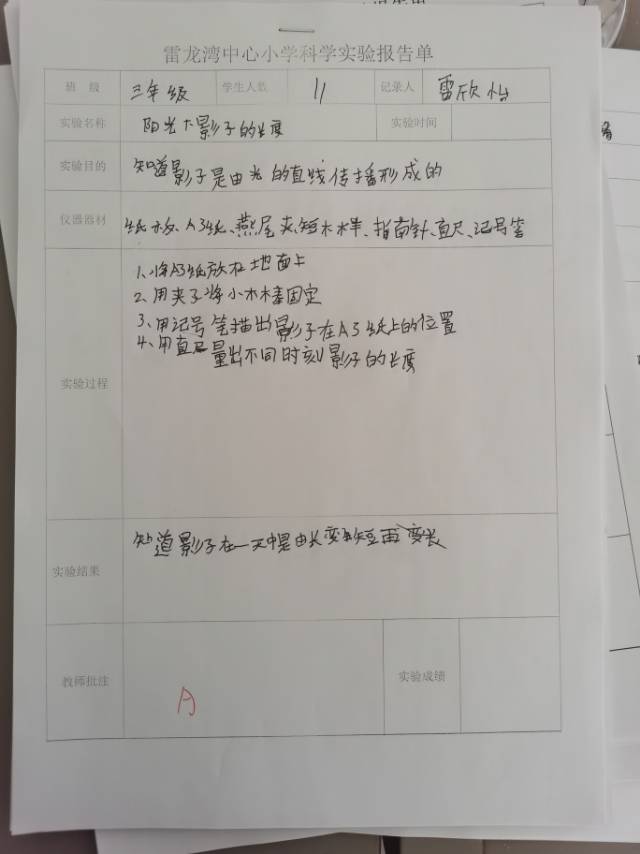 雷龙湾中心小学科学实验报告单
班 级 三年级 学生人数 11 记录人 雷欣怡
实验名称 阳光下影子的长度 实验时间
实验目的 知道影子是由光的直线传播形成的
仪器器材 纸板、A3纸、燕尾夹、短木棒、指南针、直尺、记号笔
实验过程
1、将A3纸放在地面上
2、用夹子将小木棒固定
3、用记号笔描出影子在A3纸上的位置
4、用直尺量出不同时刻影子的长度
实验结果 知道影子在一天中是由长变短再变长
教师批注 A 实验成绩